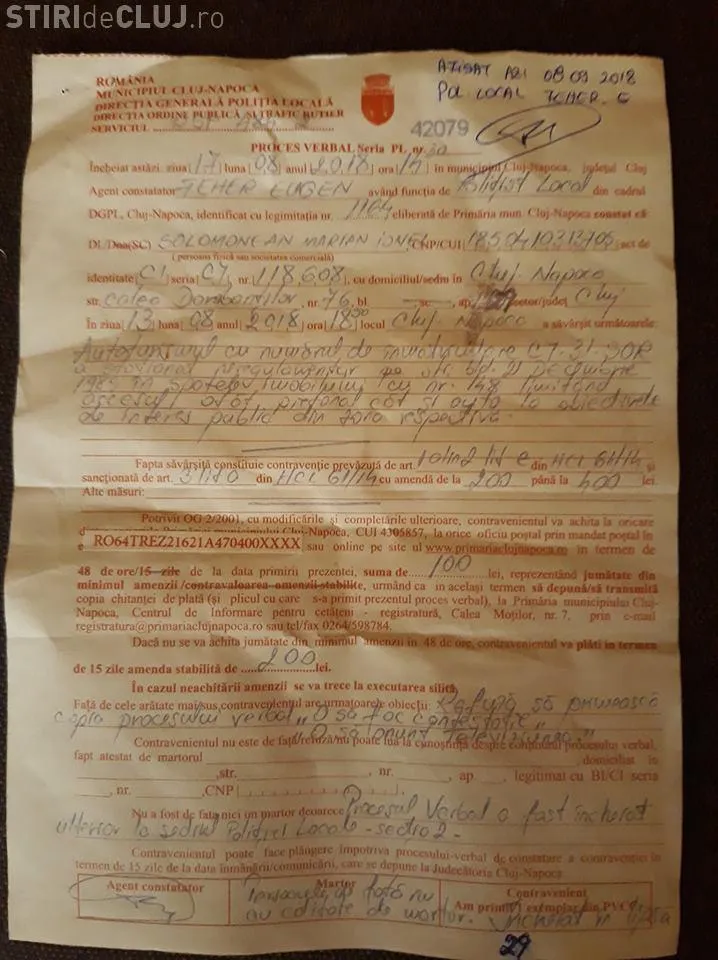 STIRIdeCLUJ.ro
AFIȘAT AZI 08 09 2018
POL. LOCAL FEHER E
ROMÂNIA
MUNICIPIUL CLUJ-NAPOCA
DIRECȚIA GENERALĂ POLIȚIA LOCALĂ
DIRECȚIA ORDINE PUBLICĂ ȘI TRAFIC RUTIER
SERVICIUL
42079
PROCES VERBAL Seria PL nr.
Încheiat astăzi, ziua 17 luna 08 anul 2018 ora 14 30 în municipiul Cluj-Napoca, județul Cluj
Agent constatator FEHER EUGEN având funcția de Polițist Local din cadrul
DGPL, Cluj-Napoca, identificat cu legitimația nr. 1164 eliberată de Primăria mun. Cluj-Napoca constat că
Dl/Dna(SC) SOLOMONEAN MARIAN IONEL CNP/CUI act de
(persoana fizică sau societatea comercială)
identitate CI seria CJ nr. 118608, cu domiciliul/sediu în Cluj Napoca
str. Calea Dorobanților, nr. 76, bl. — sc. — ap. sector/județ Cluj
În ziua 13 luna 08 anul 2018 ora 18 30 locul Cluj Napoca a săvârșit următoarele:
Autoturismul cu numărul de înmatriculare CJ-31-SOR
a staționat neregulamentar pe str. Bp. 21 Decembrie
1989 în spatele imobilului cu nr. 148 limitând
accesul atât pietonal cât și auto la obiectivele
de interes public din zona respectivă.
Fapta săvârșită constituie contravenție prevăzută de art. 1 alin 2 lit e din HCL 61/14 și
sancționată de art. 3 lit a din HCL 61/14 cu amenda de la 200 până la 400 lei.
Alte măsuri:
Potrivit OG 2/2001, cu modificările și completările ulterioare, contravenientul va achita la oricare
Primăria municipiului Cluj-Napoca, CUI 4305857, la orice oficiu poștal prin mandat poștal în
RO64TREZ21621A470400XXXX sau online pe site ul www.primariaclujnapoca.ro în termen de
48 de ore/15 zile de la data primirii prezentei, suma de 100 lei, reprezentând jumătate din
minimul amenzii /contravaloarea amenzii stabilite, urmând ca in același termen să depună/să transmită
copia chitanței de plată (și plicul cu care s-a primit prezentul proces verbal), la Primăria municipiului Cluj-
Napoca, Centrul de Informare pentru cetățeni - registratură, Calea Moților, nr. 7, prin e-mail
registratura@primariaclujnapoca.ro sau tel/fax 0264/598784.
Dacă nu se va achita jumătate din minimul amenzii în 48 de ore, contravenientul va plăti în termen
de 15 zile amenda stabilită de 200 lei.
În cazul neachitării amenzii se va trece la executarea silită.
Față de cele arătate mai sus, contravenientul are următoarele obiecții: Refuză să primească
copia procesului verbal „O să fac contestație"
„O să anunț televiziunea"
Contravenientul nu este de față/refuză/nu poate lua la cunoștință despre conținutul procesului verbal,
fapt atestat de martorul , domiciliat în
, str. , nr. , ap. , legitimat cu BI/CI seria
, nr. , CNP
Nu a fost de față nici un martor deoarece Procesul Verbal a fost încheiat
ulterior la sediul Poliției Locale - sectia 2 -
Contravenientul poate face plângere împotriva procesului-verbal de constatare a contravenției în
termen de 15 zile de la data înmânării/comunicării, care se depune la Judecătoria Cluj-Napoca
Agent constatator
Martor
Contravenient
Am primit 1 exemplar din PVCC
Persoanele de față nu
au calitate de martor.
Încheiat în lipsa
29